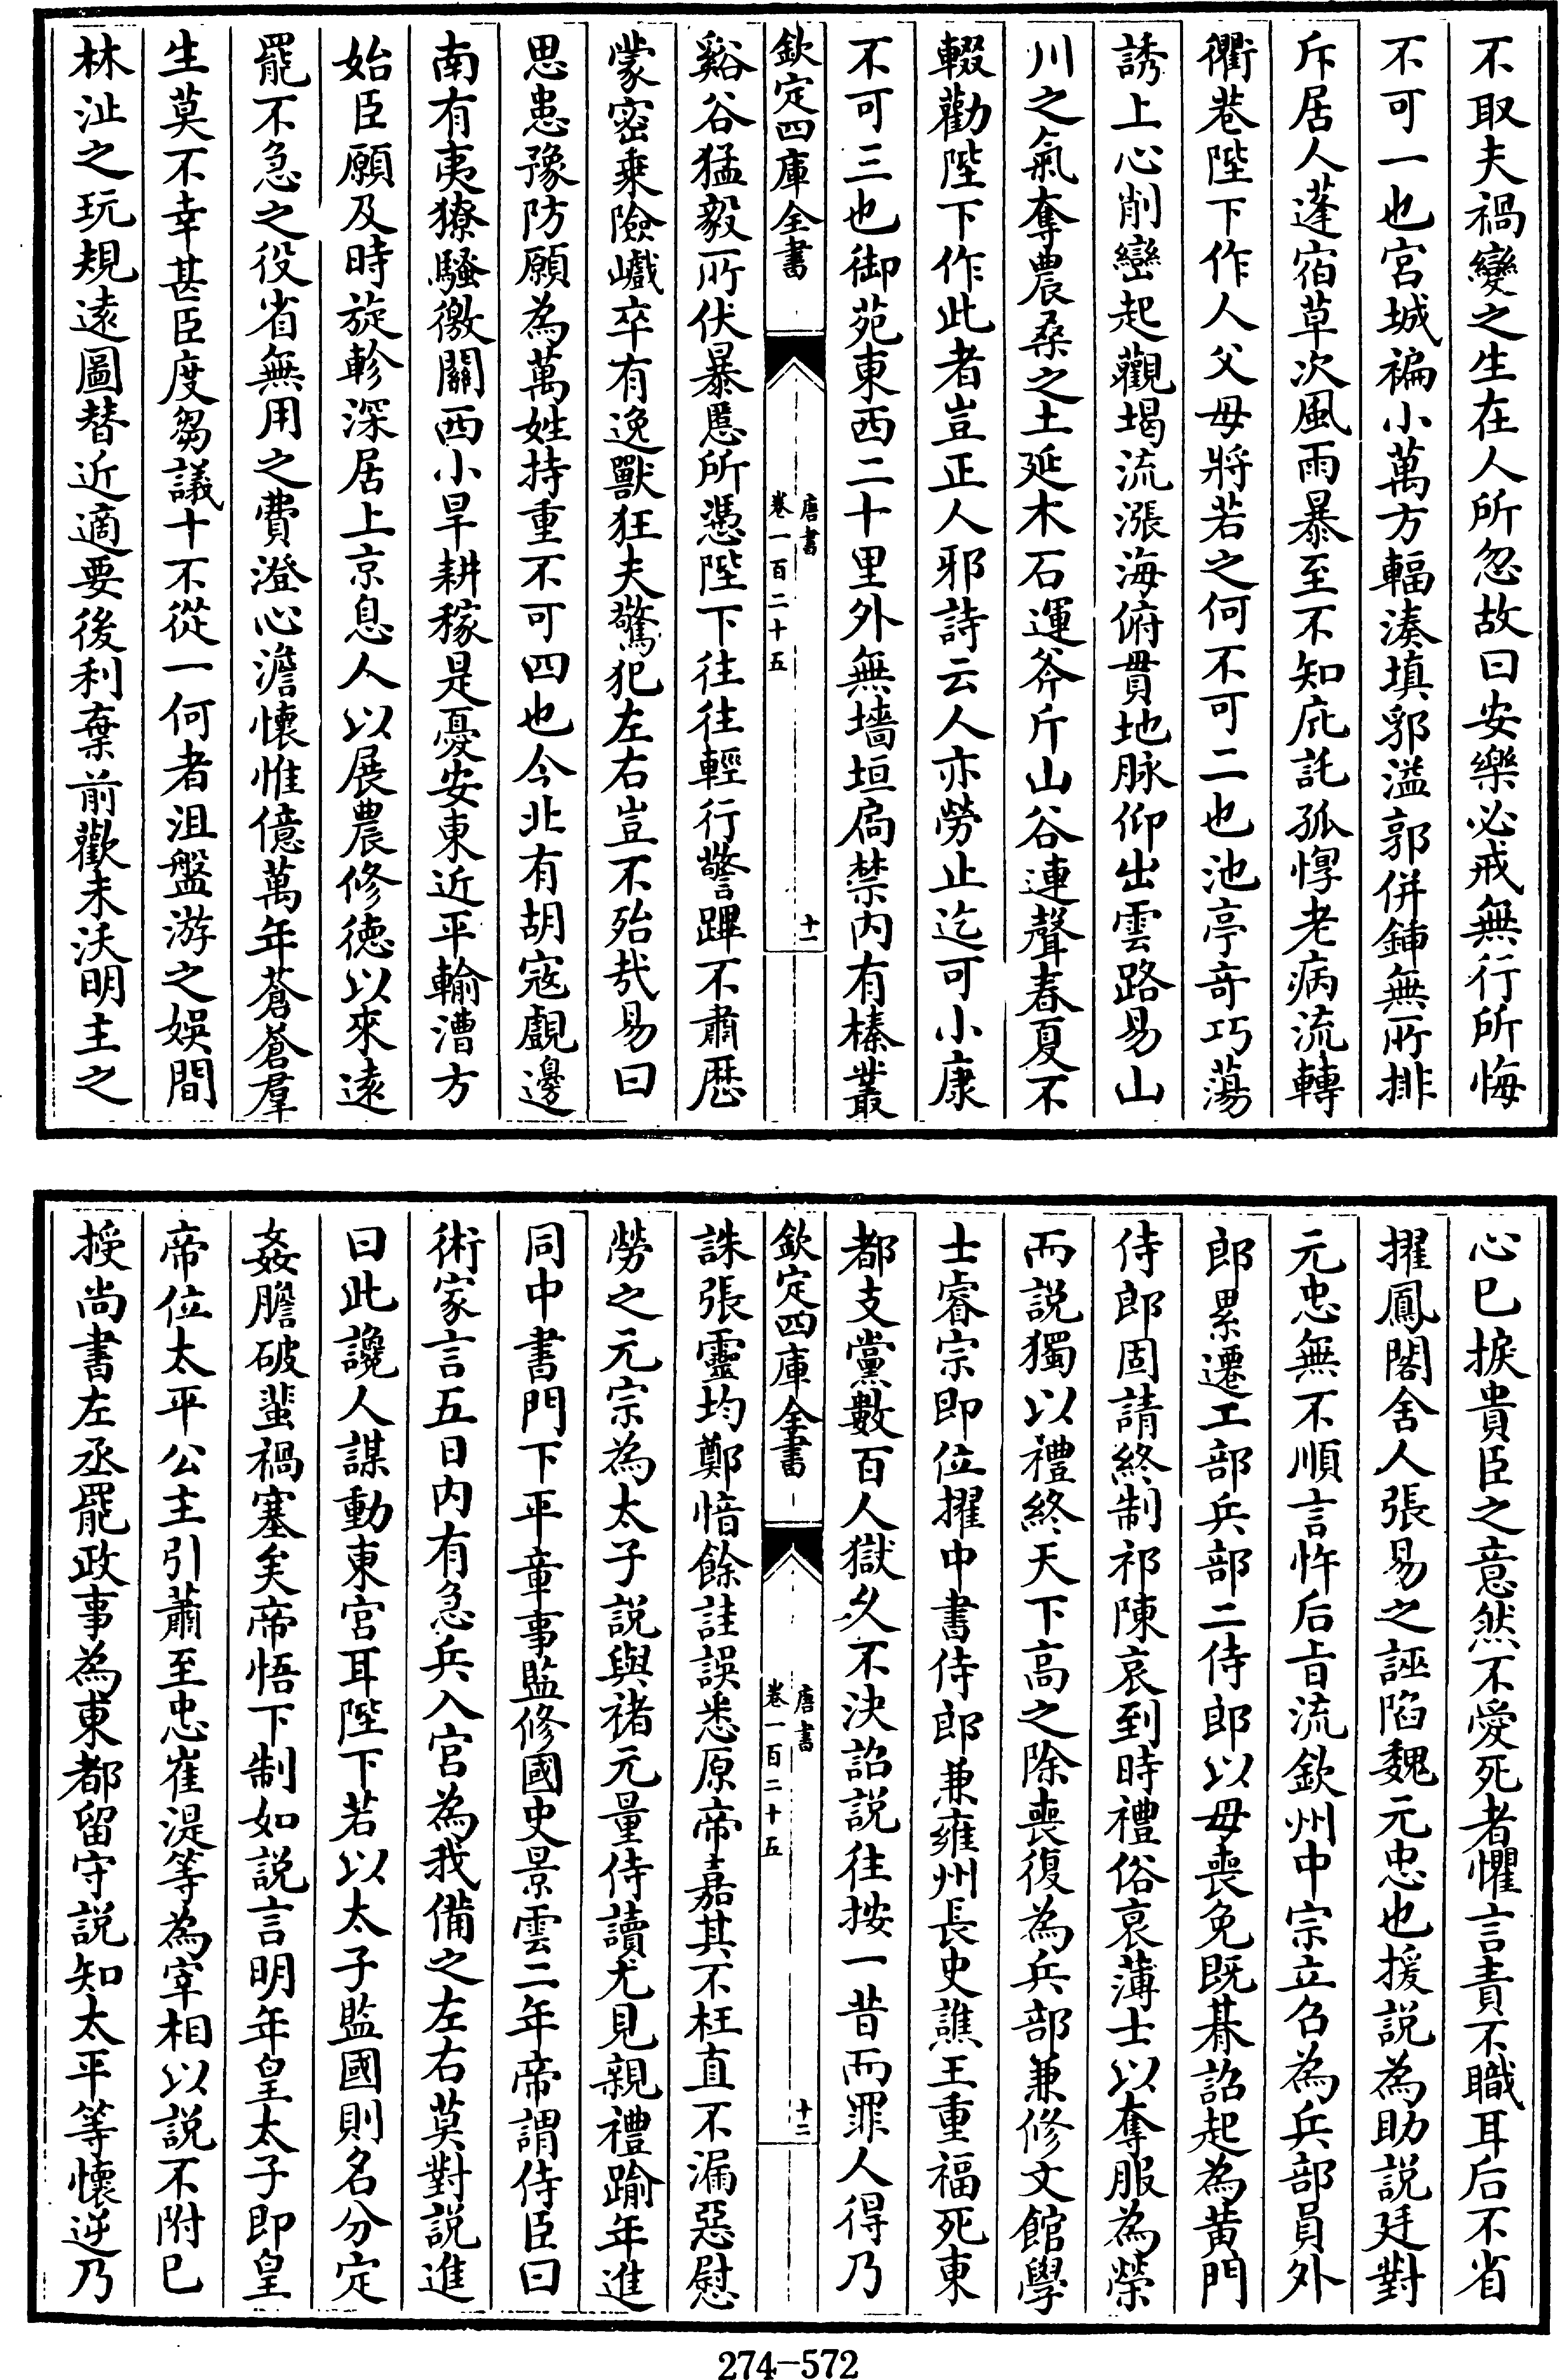 不取夫禍變之生在人所忽故曰安樂必戒無行所悔
不可一也宮城褊小萬方輻湊填郛溢郭併鍤無所排
斥居人蓬宿草次風雨暴至不知庇託孤惸老病流轉
衢巷陛下作人父母將若之何不可二也池亭奇巧蕩
誘上心削巒起觀堨流漲海俯貫地脉仰出雲路易山
川之氣奪農桑之土延木石運斧斤山谷連聲春夏不
輟勸陛下作此者豈正人邪詩云人亦勞止迄可小康
不可三也御苑東西二十里外無墻垣扃禁內有榛叢
欽定四庫全書
唐書
卷一百二十五
十一
谿谷猛毅所伏暴慝所憑陛下往往輕行警蹕不肅歷
蒙密乗險巇卒有逸獸狂夫驚犯左右豈不殆哉易曰
思患豫防願為萬姓持重不可四也今北有胡寇覷邊
南有夷獠騷徼關西小旱耕稼是憂安東近平輸漕方
始臣願及時旋軫深居上京息人以展農修德以來遠
罷不急之役省無用之費澄心澹懷惟億萬年蒼蒼羣
生莫不幸甚臣度芻議十不從一何者沮盤游之娛間
林沚之玩規遠圖替近適要後利棄前歡未沃明主之
心已捩貴臣之意然不愛死者懼言責不職耳后不省
擢鳳閣舍人張易之誣陷魏元忠也援說為助說廷對
元忠無不順言忤后㫖流欽州中宗立召為兵部員外
郎累遷工部兵部二侍郎以母喪免既朞詔起為黃門
侍郎固請終制祁陳哀到時禮俗衰薄士以奪服為榮
而說獨以禮終天下高之除喪復為兵部兼修文館學
士睿宗即位擢中書侍郎兼雍州長史譙王重福死東
都支黨數百人獄久不決詔說往按一昔而罪人得乃
欽定四庫全書
唐書
卷一百二十五
十二
誅張靈均鄭愔餘詿誤悉原帝嘉其不枉直不漏惡慰
勞之元宗為太子說與禇元量侍讀尤見親禮踰年進
同中書門下平章事監修國史景雲二年帝謂侍臣曰
術家言五日內有急兵入宮為我備之左右莫對說進
曰此讒人謀動東宮耳陛下若以太子監國則名分定
姦膽破蜚禍塞矣帝悟下制如說言明年皇太子即皇
帝位太平公主引蕭至忠崔湜等為宰相以說不附已
授尚書左丞罷政事為東都留守說知太平等懷逆乃
274-572